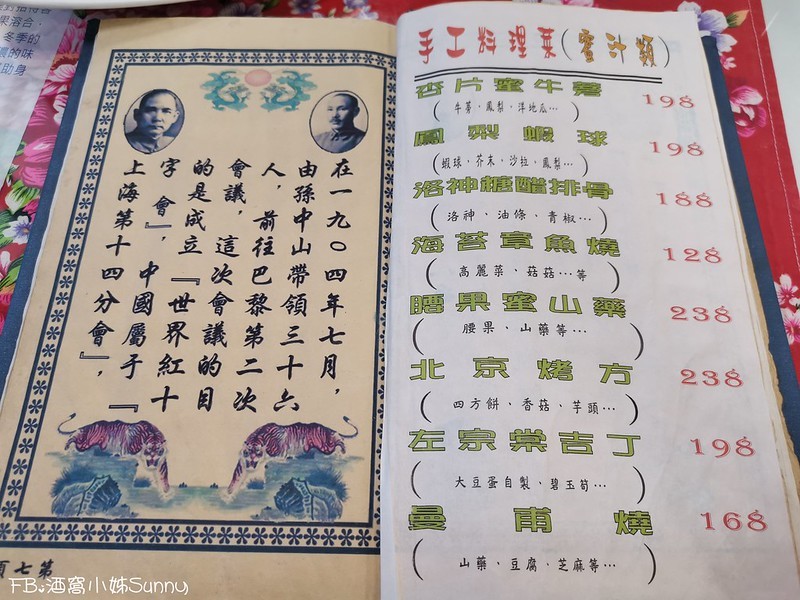 果溶合，
冬季的
濃的味
助身
在一九〇四年七月，
由孫中山帶領三十六
人，前往巴黎第二次
會議，這次會議的目
的是成立『世界紅十
字會』，中國屬于『
上海第十四分會』，
第七頁
手工料理菜(蜜汁類)
杏片蜜牛蒡 198
(牛蒡、鳳梨、洋地瓜…)
鳳梨蝦球 198
(蝦球、芥末、沙拉、鳳梨…)
洛神糖醋排骨 188
(洛神、油條、青椒…)
海苔章魚燒 128
(高麗菜、菇菇…等)
腰果蜜山藥 238
(腰果、山藥等…)
北京烤方 238
(四方餅、香菇、芋頭…)
左宗棠吉丁 198
(大豆蛋白製、碧玉筍…)
曼甫燒 168
(山藥、豆腐、芝麻等…)
FB:酒窩小姊Sunny